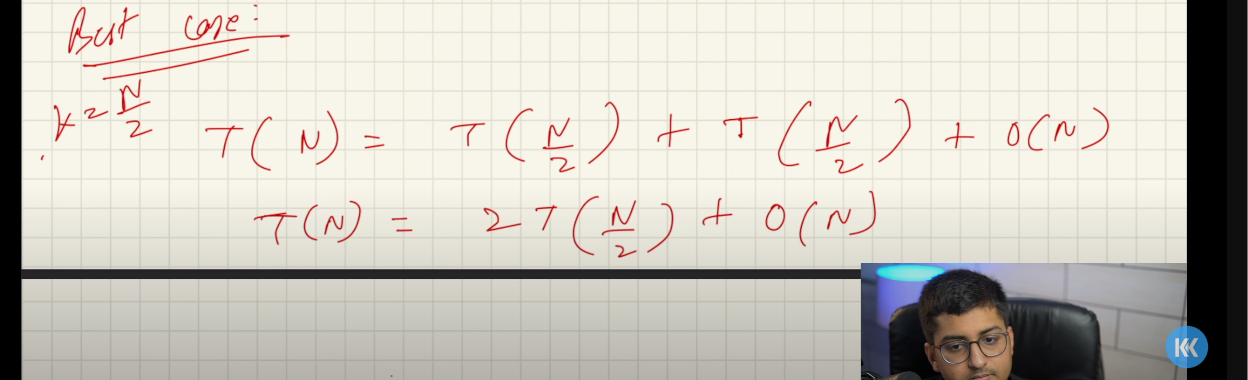 Best case:
k = N/2
T(N) = T(N/2) + T(N/2) + O(N)
T(N) = 2T(N/2) + O(N)
KK